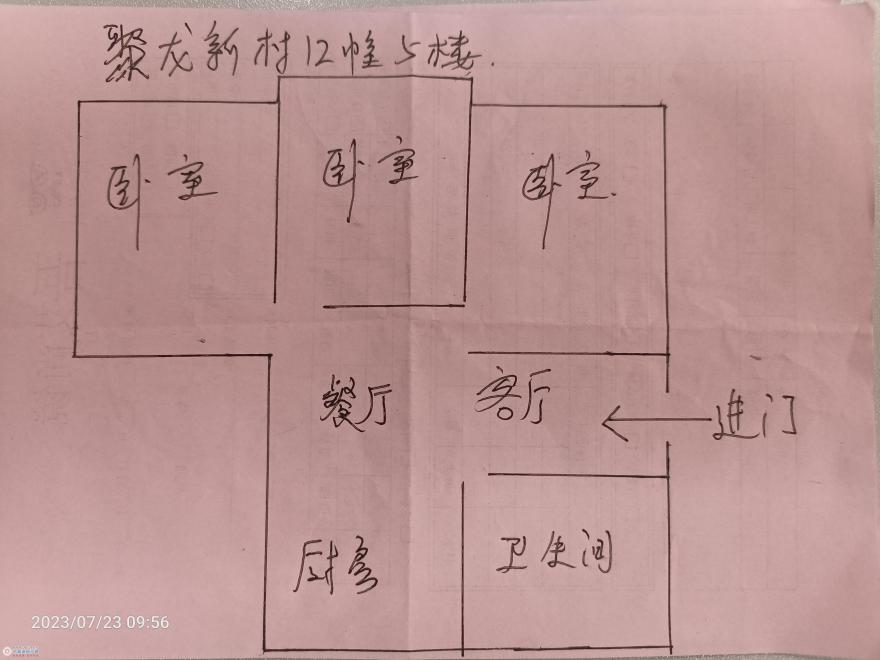 聚龙新村12幢5楼.
卧室
卧室
卧室.
餐厅
客厅
进门
厨房
卫生间
2023/07/23 09:56